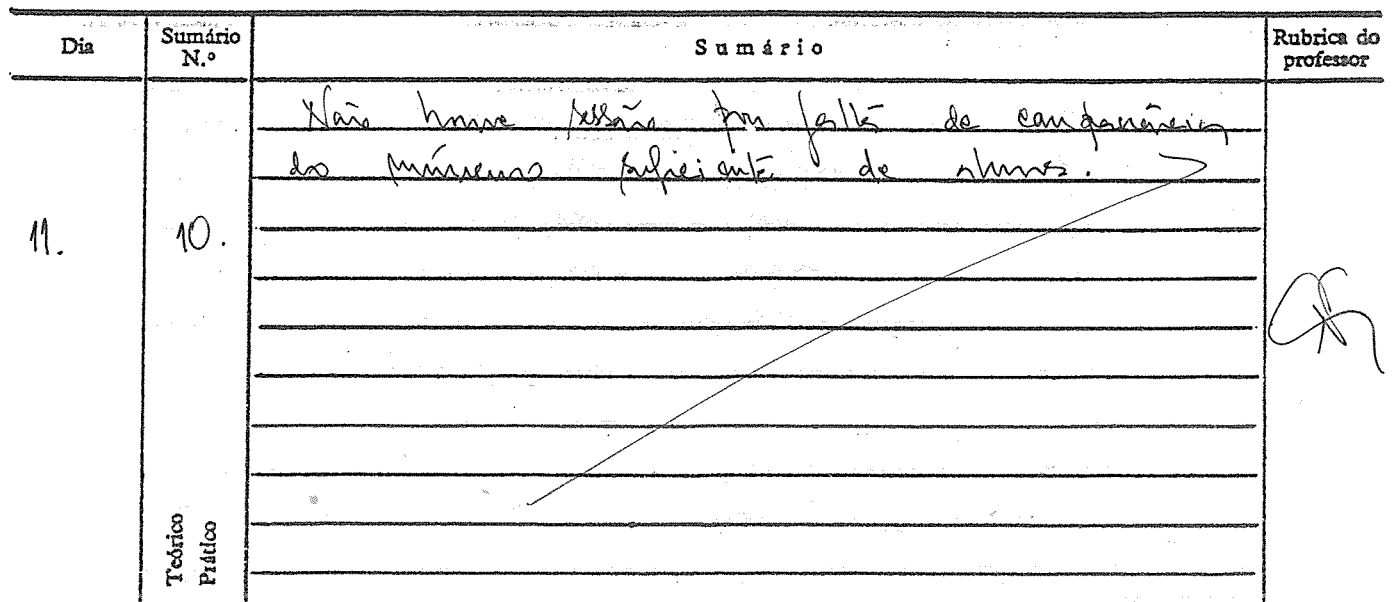 Dia
Sumário N.º
Sumário
Rubrica do professor
Não houve sessão por falta de comparência
do número suficiente de alunos.
11.
10.
Teórico
Prático